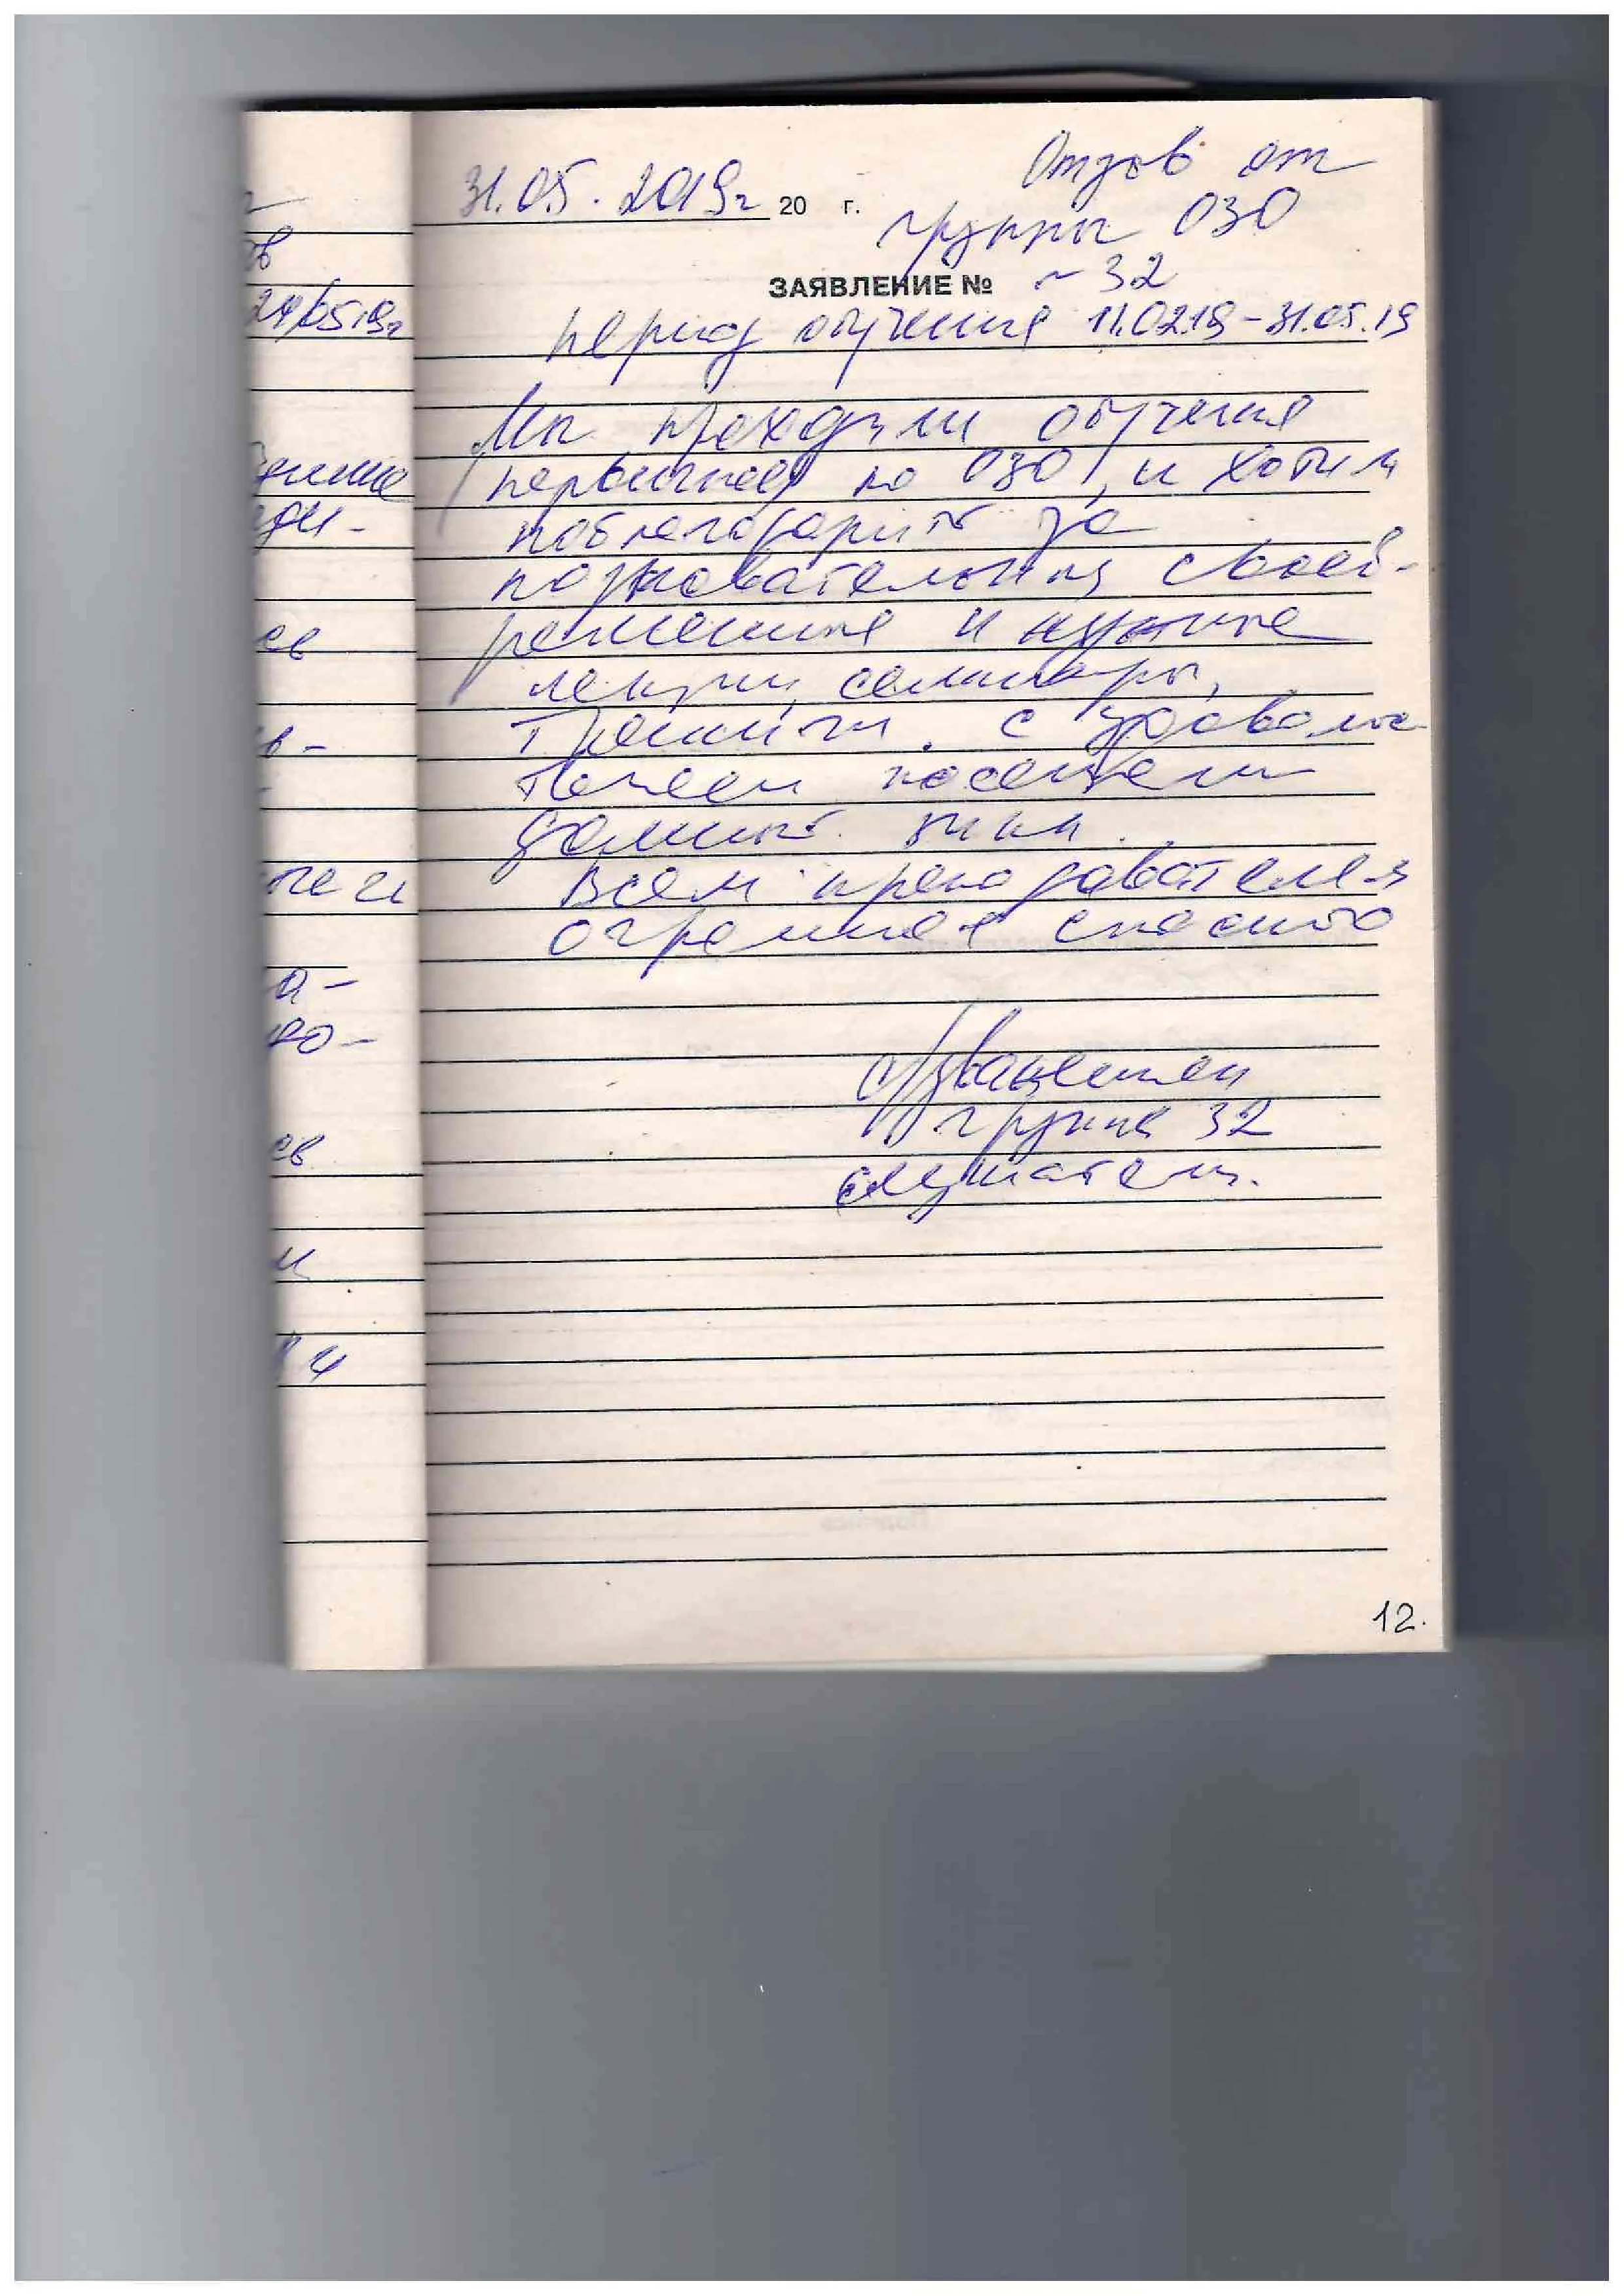 31.05.2019г 20 г.
Отзыв от
группы ОЗО
ЗАЯВЛЕНИЕ № ~ 32
период обучения 11.02.19-31.05.19
Мы проходили обучения
по ОЗО, и хотим
поблагодарить за
познавательные, своев-
ременные и нужные
лекции, семинары,
Тренинги. С удоволь
посещали
данные
Всем преподавателям
огромное спасибо
С уважением
группа 32
слушатели.
12.
24/05 19г